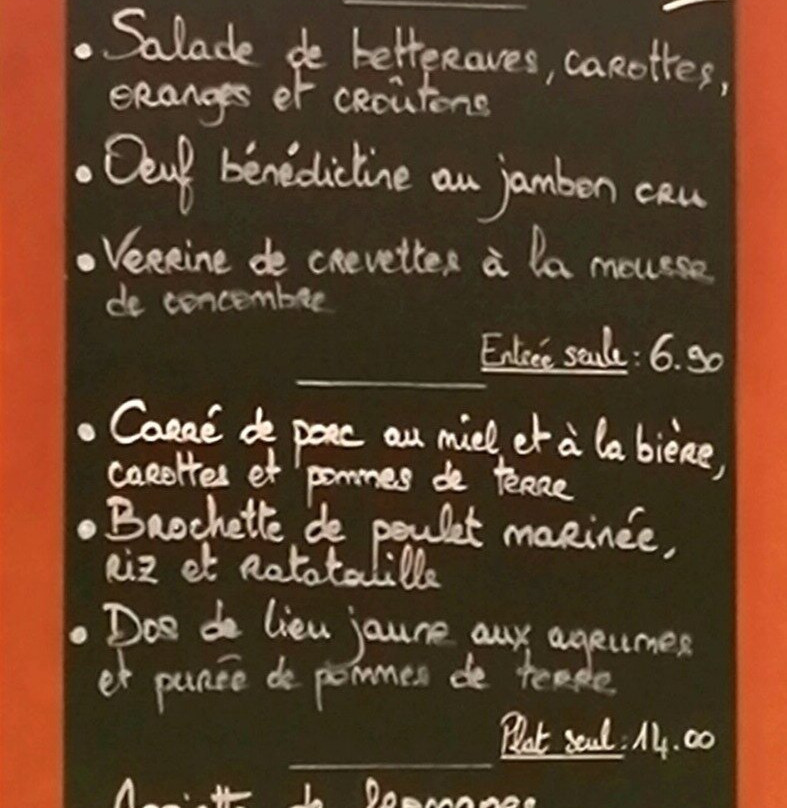 • Salade de betteraves, carottes,
oranges et croûtons
• Oeuf bénédictine au jambon cru
• Verrine de crevettes à la mousse
de concombre
Entrée seule : 6.90
• Carré de porc au miel et à la bière,
carottes et pommes de terre
• Brochette de poulet marinée,
riz et ratatouille
• Dos de lieu jaune aux agrumes
et purée de pommes de terre
Plat seul : 14.00
Assiette de fromages